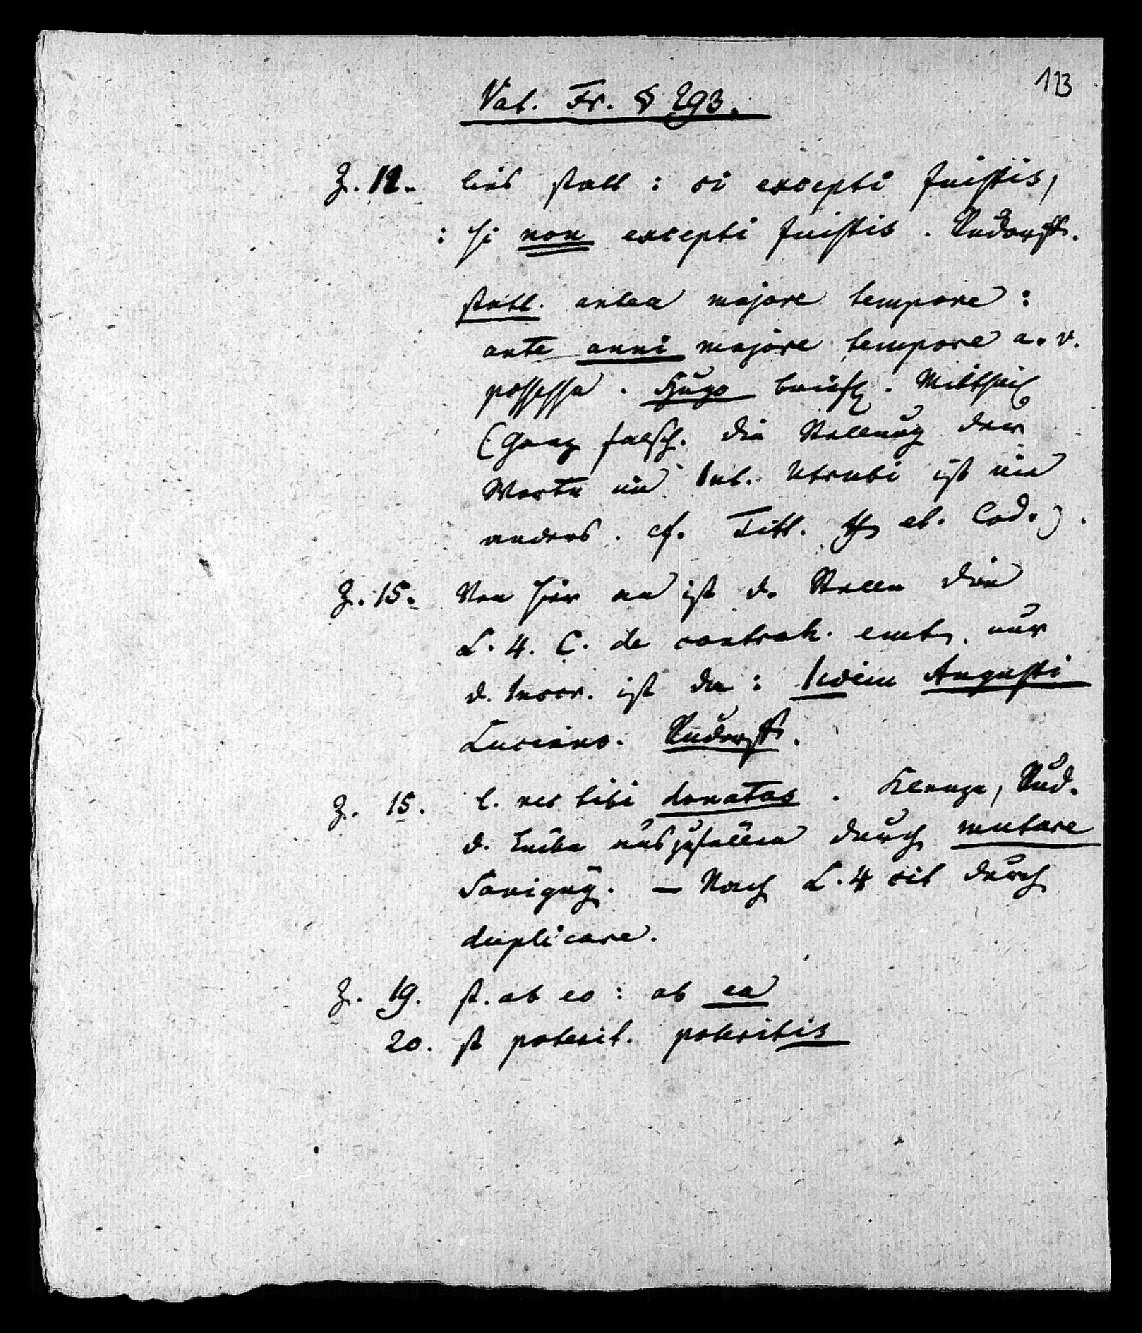 113
Vat. Fr. § 293.
Z. 12. lies statt: si excepti fuistis,
: si non excepti fuistis. Rudorff.
statt. antea majore tempore:
ante anni majore tempore a. v.
possessa. Hugo briefl. Mittheil
(Ganz falsch. die Stellung der
Worte im Int. Utrubi ist nie
anders. cf. Titt. et Cod.).
Z. 15. Von hier an ist d. Stelle die
L. 4. C. de contrah. emt. nur
d. Inscr. ist da: Iidem Augusti
Luciano. Rudorff.
Z. 15. l. res tibi donatas. Klenze, Rud.
d. Lücke auszufüllen durch mutare
Savigny. — Nach L. 4 cit durch
duplicare.
Z. 19. st. ab eo: ab ea
20. st poterit. poteritis